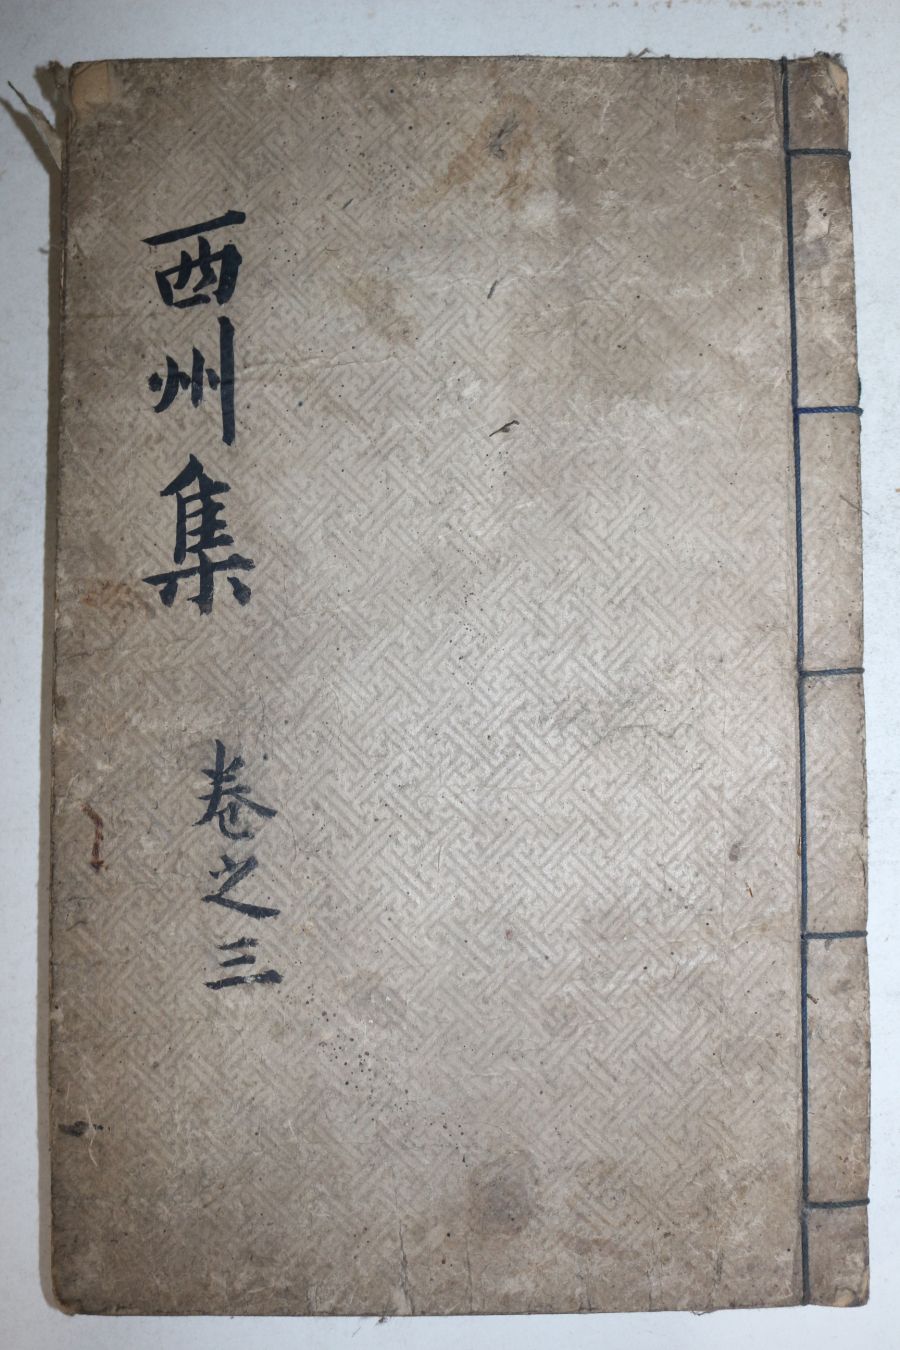 西州集
卷之三